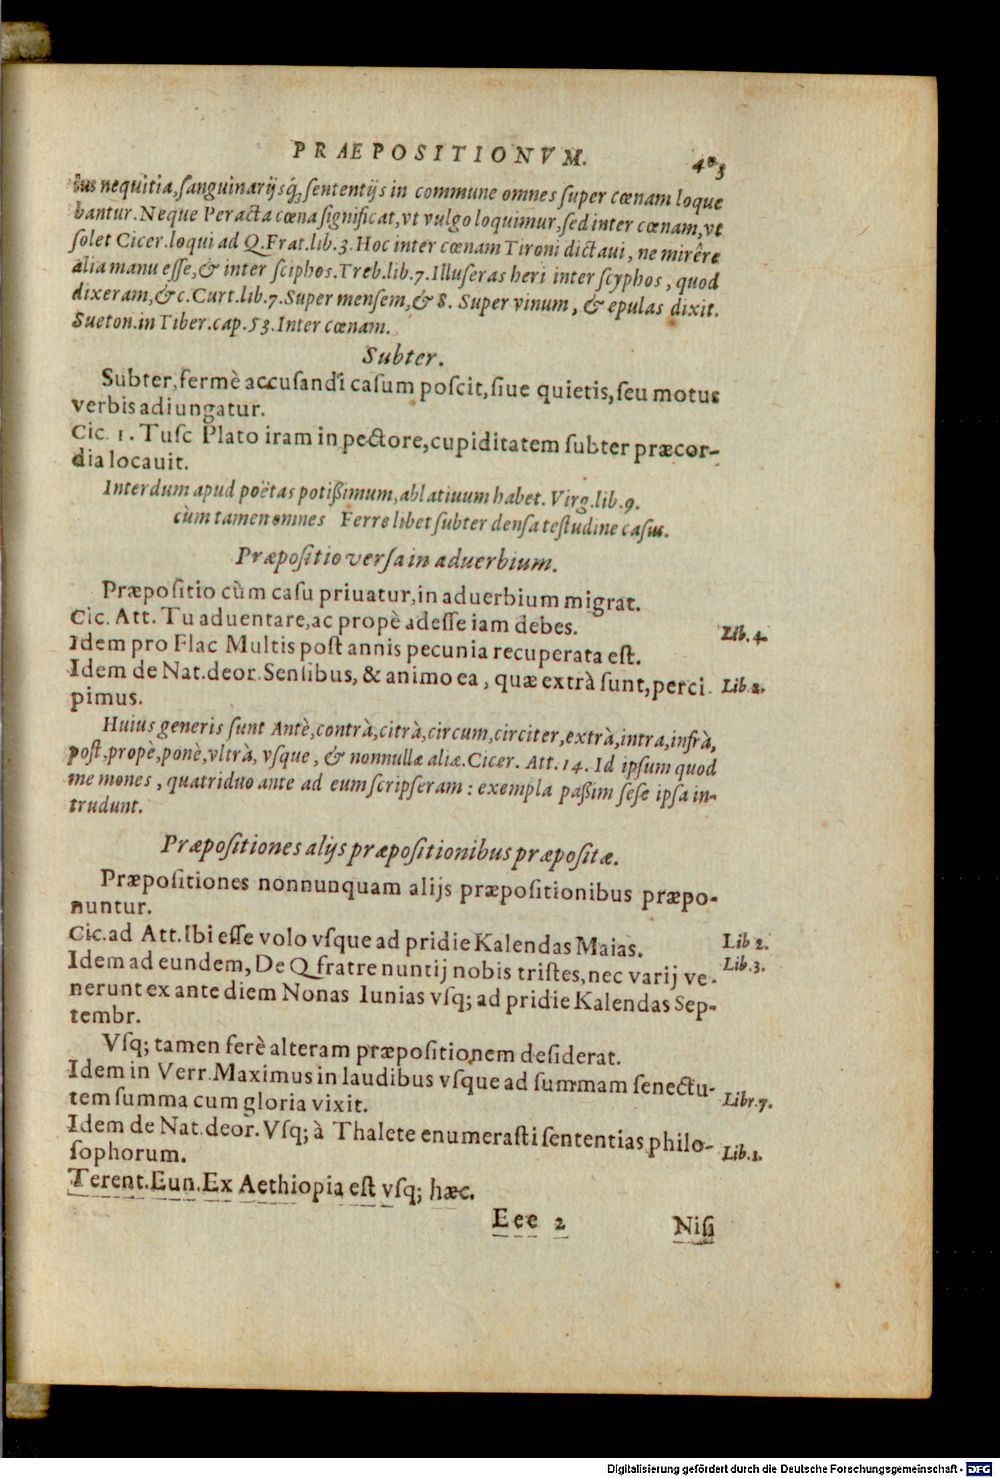 PRÆPOSITIONVM. 483
ius nequitia, sanguinarijsq́; sententijs in commune omnes super cœnam loque
bantur. Neque Peracta cœna significat, vt vulgo loquimur, sed inter cœnam, vt
solet Cicer. loqui ad Q. Frat. lib. 3. Hoc inter cœnam Tironi dictaui, ne mirêre
alia manu esse, & inter sciphos. Treb. lib. 7. Illuseras heri inter scyphos, quod
dixeram, &c. Curt. lib. 7. Super mensem, & 8. Super vinum, & epulas dixit.
Sueton. in Tiber. cap. 53. Inter cœnam.
Subter.
Subter, fermè accusandi casum poscit, siue quietis, seu motus
verbis adiungatur.
Cic. 1. Tusc Plato iram in pectore, cupiditatem subter præcor-
dia locauit.
Interdum apud poëtas potißimum, ablatiuum habet. Virg. lib. 9.
cùm tamen omnes Ferre libet subter densa testudine casus.
Præpositio versa in aduerbium.
Præpositio cùm casu priuatur, in aduerbium migrat.
Cic. Att. Tu aduentare, ac propè adesse iam debes. Lib. 4.
Idem pro Flac Multis post annis pecunia recuperata est.
Idem de Nat. deor. Sensibus, & animo ea, quæ extrà sunt, perci- Lib. 2.
pimus.
Huius generis sunt Antè, contrà, citrà, circum, circiter, extrà, intra, infrà,
post, propè, ponè, vltrà, vsque, & nonnullæ aliæ. Cicer. Att. 14. Id ipsum quod
me mones, quatriduo ante ad eum scripseram: exempla paßim sese ipsa in-
trudunt.
Præpositiones alijs præpositionibus præpositæ.
Præpositiones nonnunquam alijs præpositionibus præpo-
nuntur.
Cic. ad Att. Ibi esse volo vsque ad pridie Kalendas Maias. Lib 2.
Idem ad eundem, De Q fratre nuntij nobis tristes, nec varij ve- Lib. 3.
nerunt ex ante diem Nonas Iunias vsq; ad pridie Kalendas Sep-
tembr.
Vsq; tamen ferè alteram præpositionem desiderat.
Idem in Verr. Maximus in laudibus vsque ad summam senectu- Libr. 7.
tem summa cum gloria vixit.
Idem de Nat. deor. Vsq; à Thalete enumerasti sententias philo- Lib. 1.
sophorum.
Terent. Eun. Ex Aethiopia est vsq; hæc.
Eee 2 Nisi
Digitalisierung gefördert durch die Deutsche Forschungsgemeinschaft - DFG